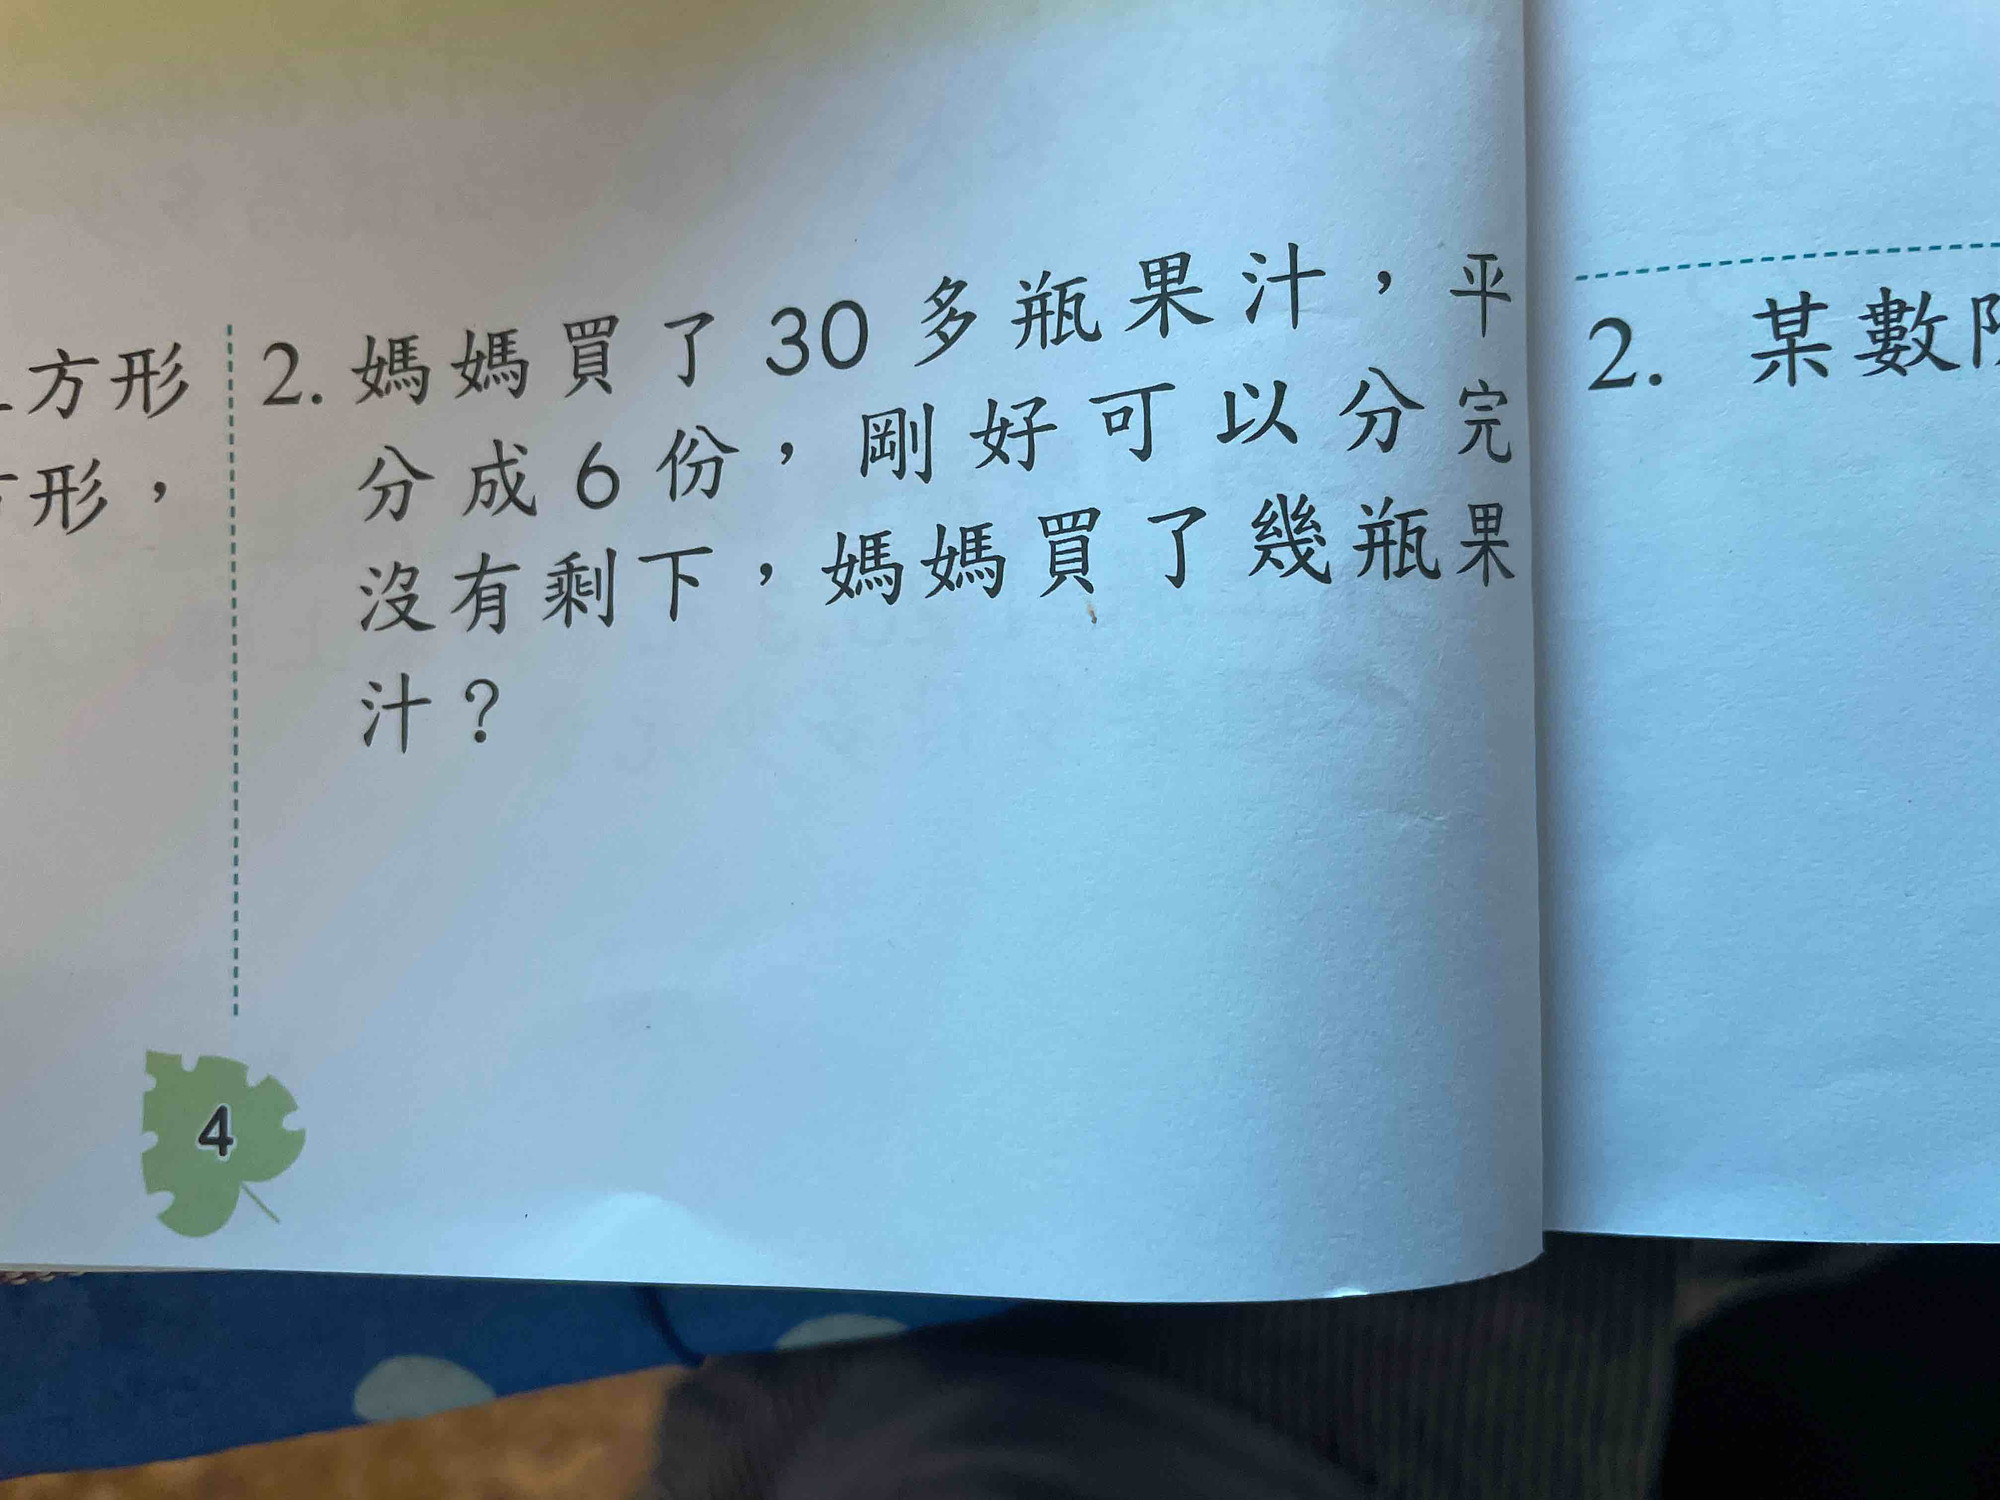 方形
形，
2. 媽媽買了30多瓶果汁，平
分成6份，剛好可以分完
沒有剩下，媽媽買了幾瓶果
汁？
4
2. 某數